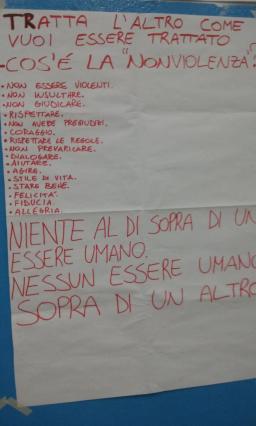 TRATTA L'ALTRO COME
VUOI ESSERE TRATTATO
-COS'É LA "NONVIOLENZA"?
• NON ESSERE VIOLENTI.
• NON INSULTARE.
• NON GIUDICARE.
• RISPETTARE.
• NON AVERE PREGIUDIZI.
• CORAGGIO.
• RISPETTARE LE REGOLE.
• NON PREVARICARE.
• DIALOGARE.
• AIUTARE.
• AGIRE.
• STILE DI VITA.
• STARE BENE.
• FELICITÀ.
• FIDUCIA.
• ALLEGRIA.
NIENTE AL DI SOPRA DI UN
ESSERE UMANO.
NESSUN ESSERE UMANO
SOPRA DI UN ALTRO